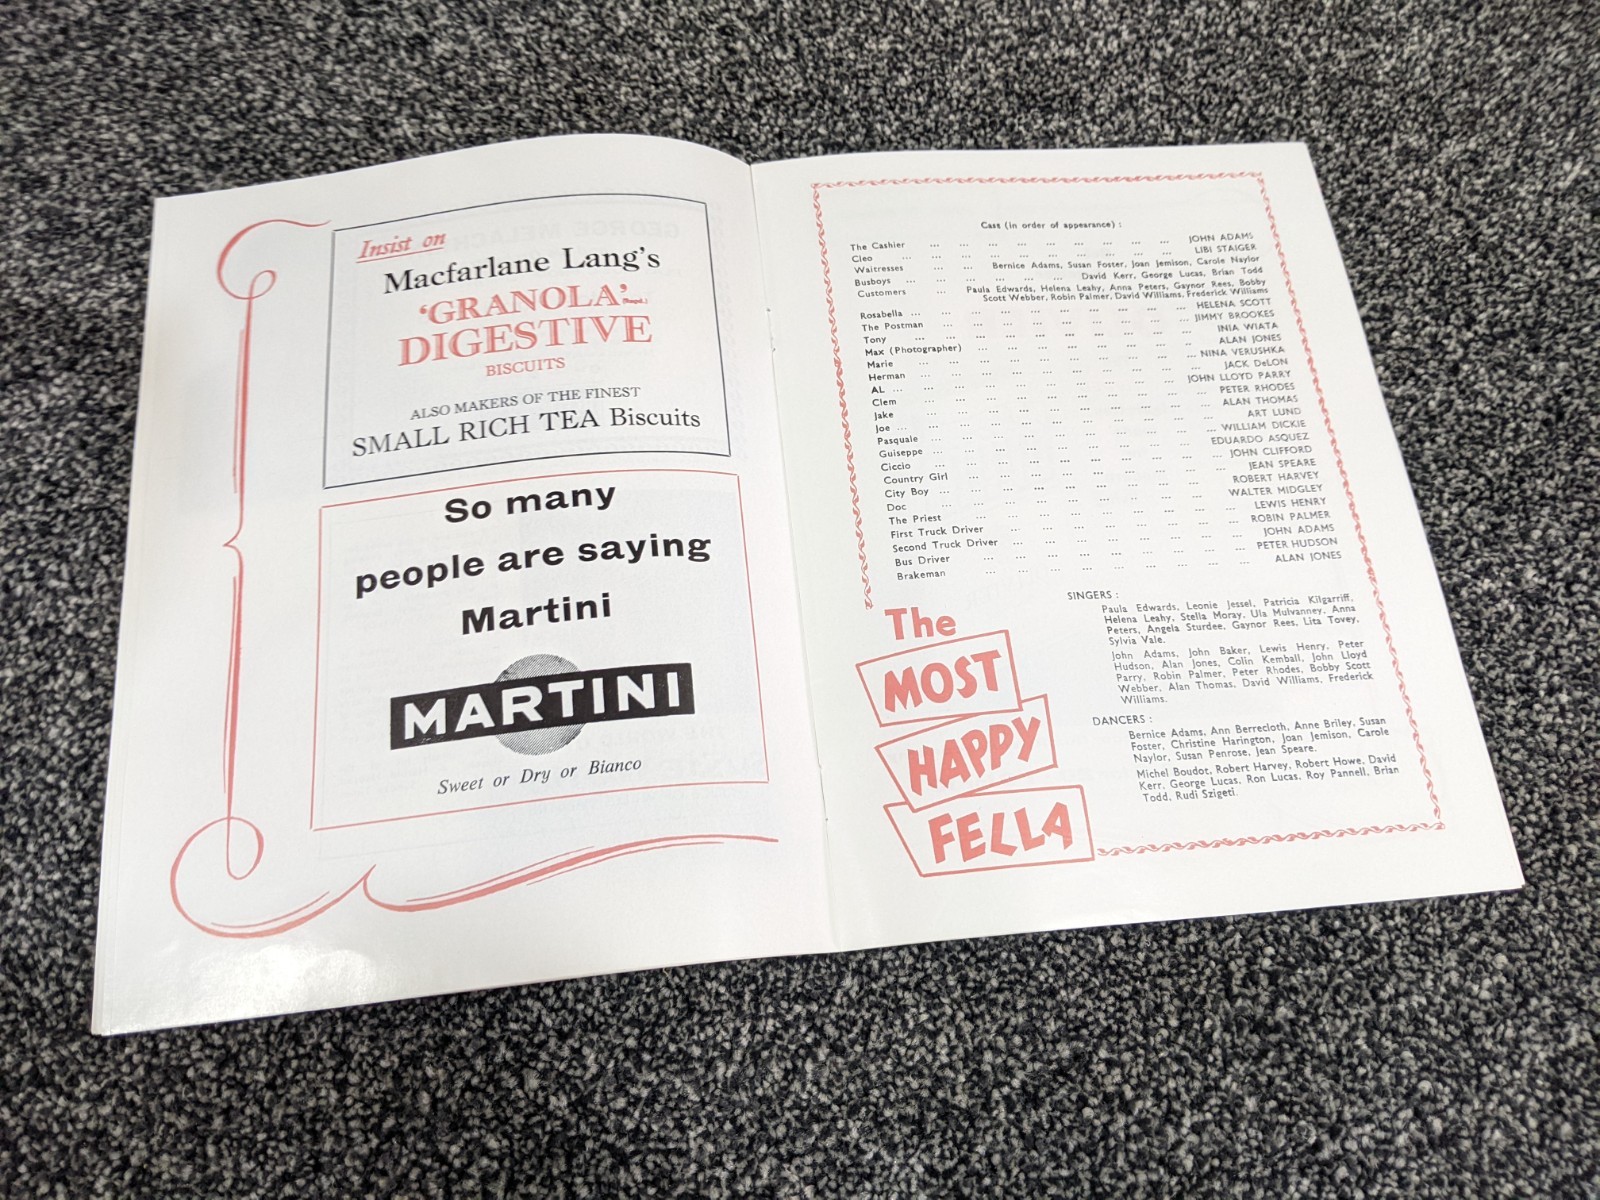 Insist on
Macfarlane Lang's
'GRANOLA' (Regd.)
DIGESTIVE
BISCUITS
ALSO MAKERS OF THE FINEST
SMALL RICH TEA Biscuits
So many
people are saying
Martini
MARTINI
Sweet or Dry or Bianco
Cast (in order of appearance) :
The Cashier ... ... ... ... ... ... ... ... ... JOHN ADAMS
Cleo ... ... ... ... ... ... ... ... ... LIBI STAIGER
Waitresses ... ... Bernice Adams, Susan Foster, Joan Jemison, Carole Naylor
Busboys ... ... ... ... ... ... David Kerr, George Lucas, Brian Todd
Customers ... ... Paula Edwards, Helena Leahy, Anna Peters, Gaynor Rees, Bobby
Scott Webber, Robin Palmer, David Williams, Frederick Williams
Rosabella ... ... ... ... ... ... ... ... ... HELENA SCOTT
The Postman ... ... ... ... ... ... ... ... ... JIMMY BROOKES
Tony ... ... ... ... ... ... ... ... ... INIA WIATA
Max (Photographer) ... ... ... ... ... ... ... ... ALAN JONES
Marie ... ... ... ... ... ... ... ... ... NINA VERUSHKA
Herman ... ... ... ... ... ... ... ... ... JACK DeLON
AL ... ... ... ... ... ... ... ... ... JOHN LLOYD PARRY
Clem ... ... ... ... ... ... ... ... ... PETER RHODES
Jake ... ... ... ... ... ... ... ... ... ALAN THOMAS
Joe ... ... ... ... ... ... ... ... ... ART LUND
Pasquale ... ... ... ... ... ... ... ... ... WILLIAM DICKIE
Guiseppe ... ... ... ... ... ... ... ... ... EDUARDO ASQUEZ
Ciccio ... ... ... ... ... ... ... ... ... JOHN CLIFFORD
Country Girl ... ... ... ... ... ... ... ... ... JEAN SPEARE
City Boy ... ... ... ... ... ... ... ... ... ROBERT HARVEY
Doc ... ... ... ... ... ... ... ... ... WALTER MIDGLEY
The Priest ... ... ... ... ... ... ... ... ... LEWIS HENRY
First Truck Driver ... ... ... ... ... ... ... ... ROBIN PALMER
Second Truck Driver ... ... ... ... ... ... ... ... JOHN ADAMS
Bus Driver ... ... ... ... ... ... ... ... ... PETER HUDSON
Brakeman ... ... ... ... ... ... ... ... ... ALAN JONES
SINGERS :
Paula Edwards, Leonie Jessel, Patricia Kilgarriff,
Helena Leahy, Stella Moray, Ula Mulvanney, Anna
Peters, Angela Sturdee, Gaynor Rees, Lita Tovey,
Sylvia Vale.
John Adams, John Baker, Lewis Henry, Peter
Hudson, Alan Jones, Colin Kemball, John Lloyd
Parry, Robin Palmer, Peter Rhodes, Bobby Scott
Webber, Alan Thomas, David Williams, Frederick
Williams.
DANCERS :
Bernice Adams, Ann Berrecloth, Anne Briley, Susan
Foster, Christine Harington, Joan Jemison, Carole
Naylor, Susan Penrose, Jean Speare.
Michel Boudot, Robert Harvey, Robert Howe, David
Kerr, George Lucas, Ron Lucas, Roy Pannell, Brian
Todd, Rudi Szigeti.
The
MOST
HAPPY
FELLA